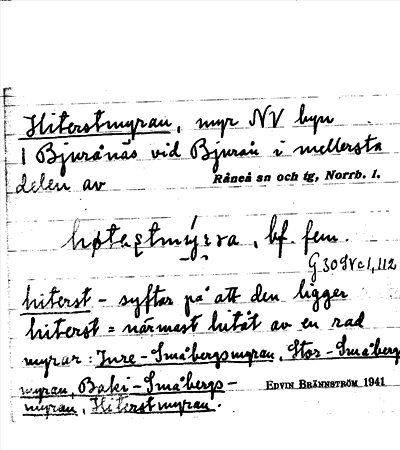 Hiterstmyran, myr NV byn
1 Bjurånäs vid Bjurån i mellersta
delen av Råneå sn och tg, Norrb. l.
bf. fem.
G 30 SV c 1, 112
hiterst – syftar på att den ligger
hiterst = närmast hitåt av en rad
myrar: Inre-Småbergsmyran, Stor-Småbergs
myran, Baki-Småbergs-
myran, Hiterstmyran.
EDVIN BRÄNNSTRÖM 1941